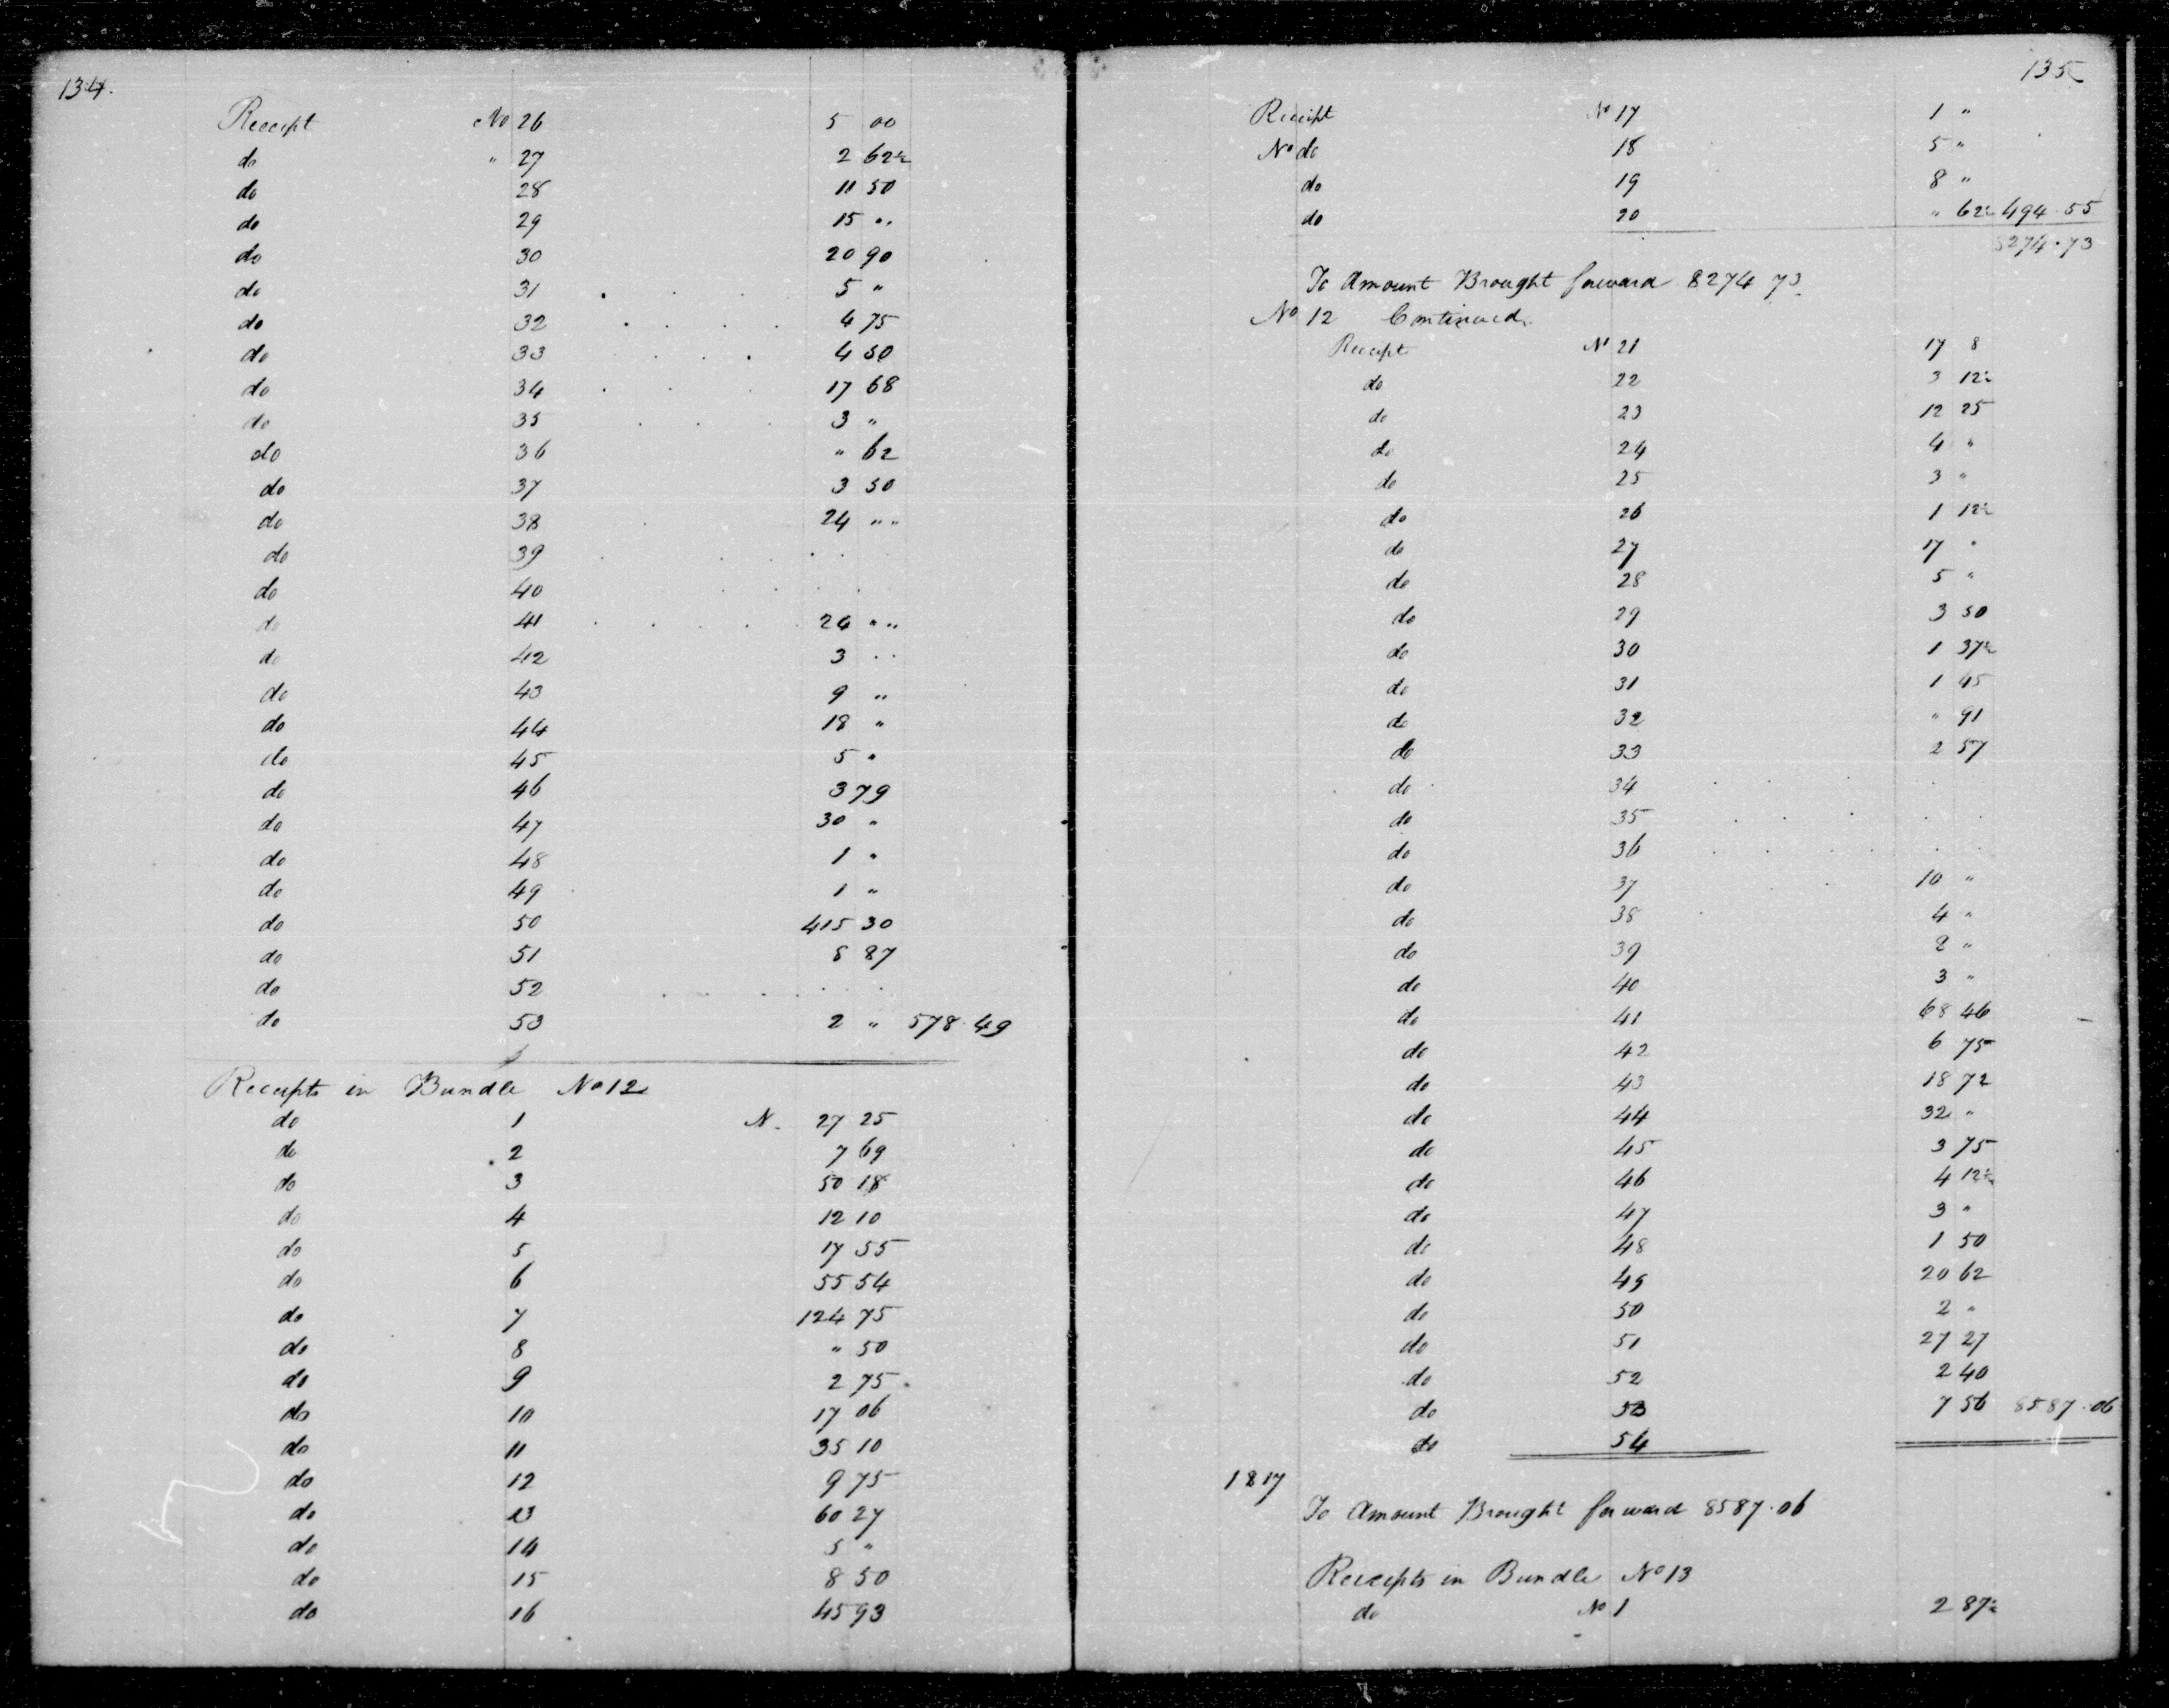 134.
Receipt No 26 5 00
do " 27 2 62½
do 28 11 50
do 29 15 "
do 30 20 90
do 31 5 "
do 32 4 75
do 33 4 50
do 34 17 68
do 35 3 "
do 36 " 62
do 37 3 50
do 38 24 " "
do 39
do 40
do 41 24 " "
do 42 3 . .
do 43 9 "
do 44 18 "
do 45 5 "
do 46 3 79
do 47 30 "
do 48 1 "
do 49 1 "
do 50 415 30
do 51 8 87
do 52
do 53 2 " 578.49
Receipts in Bundle No 12
do 1 N. 27 25
do 2 7 69
do 3 50 18
do 4 12 10
do 5 17 55
do 6 55 54
do 7 124 75
do 8 " 50
do 9 2 75
do 10 17 06
do 11 35 10
do 12 9 75
do 13 60 27
do 14 5 "
do 15 8 50
do 16 45 93
135
Receipt No 17 1 "
No do 18 5 "
do 19 8 "
do 20 " 62½ 494.55
8274.73
To Amount Brought forward 8274 73
No 12 Continued.
Receipt No 21 17 8
do 22 3 12½
do 23 12 25
do 24 4 "
do 25 3 "
do 26 1 12½
do 27 17 "
do 28 5 "
do 29 3 50
do 30 1 37½
do 31 1 45
do 32 " 91
do 33 2 57
do 34
do 35
do 36
do 37 10 "
do 38 4 "
do 39 2 "
do 40 3 "
do 41 68 46
do 42 6 75
do 43 18 72
do 44 32 "
do 45 3 75
do 46 4 12½
do 47 3 "
do 48 1 50
do 49 20 62
do 50 2 "
do 51 27 27
do 52 2 40
do 53 7 56 8587.06
do 54
1817
To Amount Brought forward 8587.06
Receipts in Bundle No 13
do No 1 2 87½